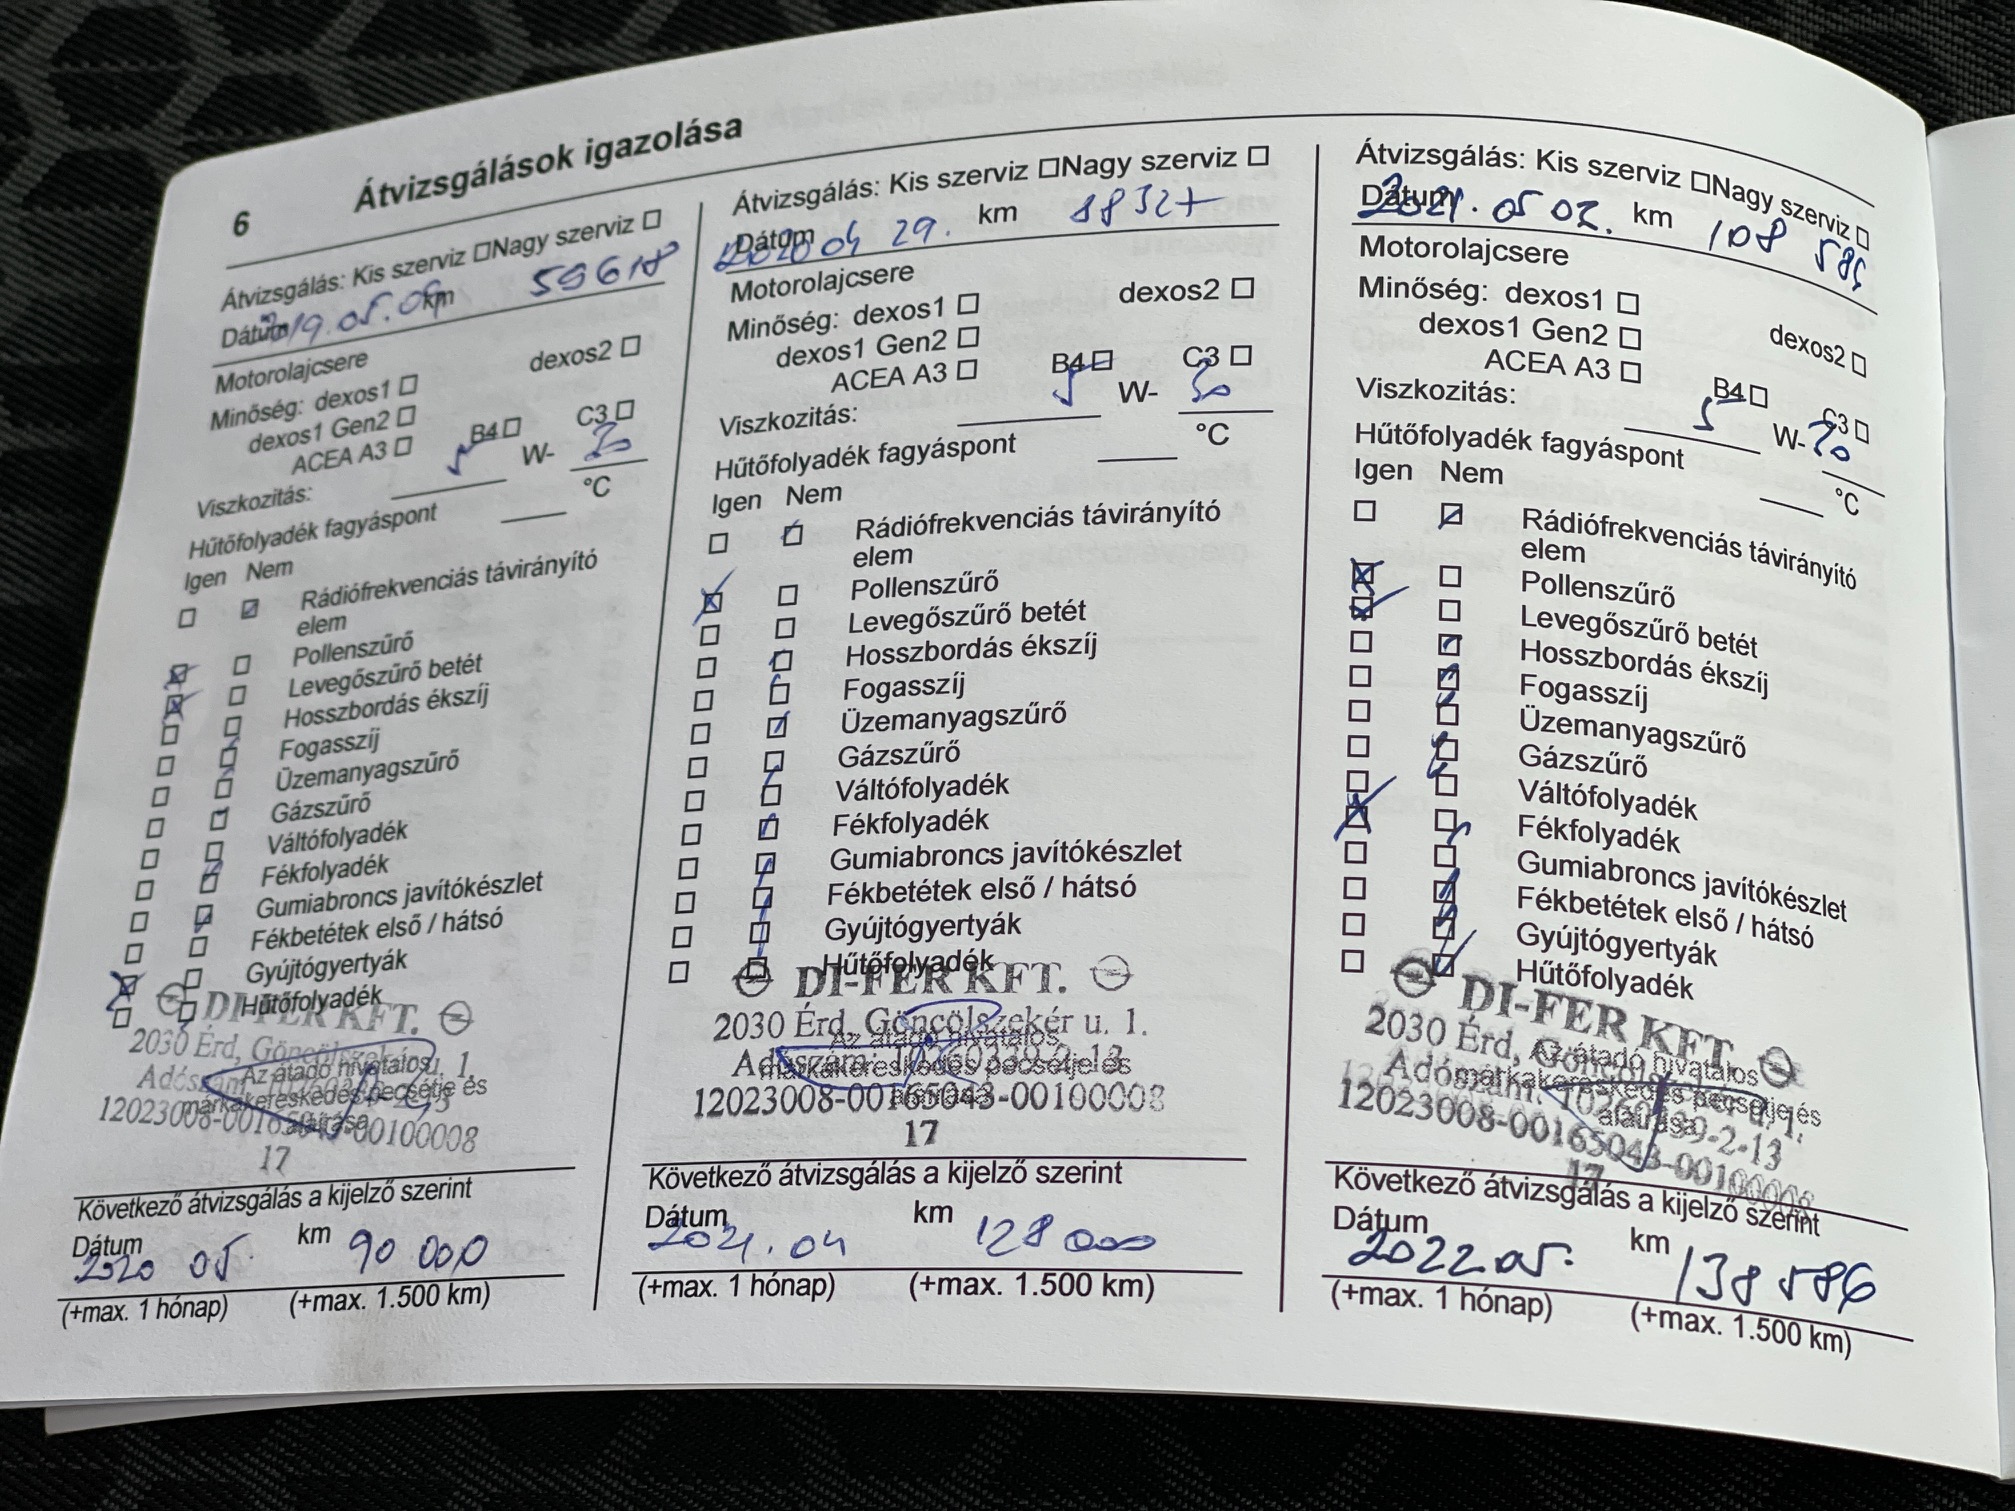 6
Átvizsgálások igazolása
Átvizsgálás: Kis szerviz Nagy szerviz
Dátum 2019.05. km 59618
Motorolajcsere
Minőség: dexos1 dexos2
dexos1 Gen2
ACEA A3 B4 C3
Viszkozitás: 5 W- 30
Hűtőfolyadék fagyáspont °C
Igen Nem
Rádiófrekvenciás távirányító
elem
Pollenszűrő
Levegőszűrő betét
Hosszbordás ékszíj
Fogasszíj
Üzemanyagszűrő
Gázszűrő
Váltófolyadék
Fékfolyadék
Gumiabroncs javítókészlet
Fékbetétek első / hátsó
Gyújtógyertyák
Hűtőfolyadék
DI-FER KFT.
2030 Érd, u. 1.
Az átadó hivatalos
márkakereskedés pecsétje és
aláírása
12023008-00165043-00100008
17
Következő átvizsgálás a kijelző szerint
Dátum 2020 05. km 90 000
(+max. 1 hónap) (+max. 1.500 km)
Átvizsgálás: Kis szerviz Nagy szerviz
Dátum 2020 04 29. km 88327
Motorolajcsere
Minőség: dexos1 dexos2
dexos1 Gen2
ACEA A3 B4 C3
Viszkozitás: 5 W- 30
Hűtőfolyadék fagyáspont °C
Igen Nem
Rádiófrekvenciás távirányító
elem
Pollenszűrő
Levegőszűrő betét
Hosszbordás ékszíj
Fogasszíj
Üzemanyagszűrő
Gázszűrő
Váltófolyadék
Fékfolyadék
Gumiabroncs javítókészlet
Fékbetétek első / hátsó
Gyújtógyertyák
Hűtőfolyadék
DI-FER KFT.
2030 Érd, Göncölszekér u. 1.
Az átadó hivatalos
Adószám: 10260339-2-13
márkakereskedés pecsétje és
aláírása
12023008-00165043-00100008
17
Következő átvizsgálás a kijelző szerint
Dátum 2021.04 km 128 000
(+max. 1 hónap) (+max. 1.500 km)
Átvizsgálás: Kis szerviz Nagy szerviz
Dátum 2021.05 02. km 108
Motorolajcsere
Minőség: dexos1
dexos1 Gen2 dexos2
ACEA A3 B4 C3
Viszkozitás: 5 W-30
Hűtőfolyadék fagyáspont °C
Igen Nem
Rádiófrekvenciás távirányító
elem
Pollenszűrő
Levegőszűrő betét
Hosszbordás ékszíj
Fogasszíj
Üzemanyagszűrő
Gázszűrő
Váltófolyadék
Fékfolyadék
Gumiabroncs javítókészlet
Fékbetétek első / hátsó
Gyújtógyertyák
Hűtőfolyadék
DI-FER KFT.
2030 Érd,
Az átadó hivatalos
márkakereskedés pecsétje és
aláírása
12023008-00165043-00100008
17
Következő átvizsgálás a kijelző szerint
Dátum 2022.05. km 138 586
(+max. 1 hónap) (+max. 1.500 km)